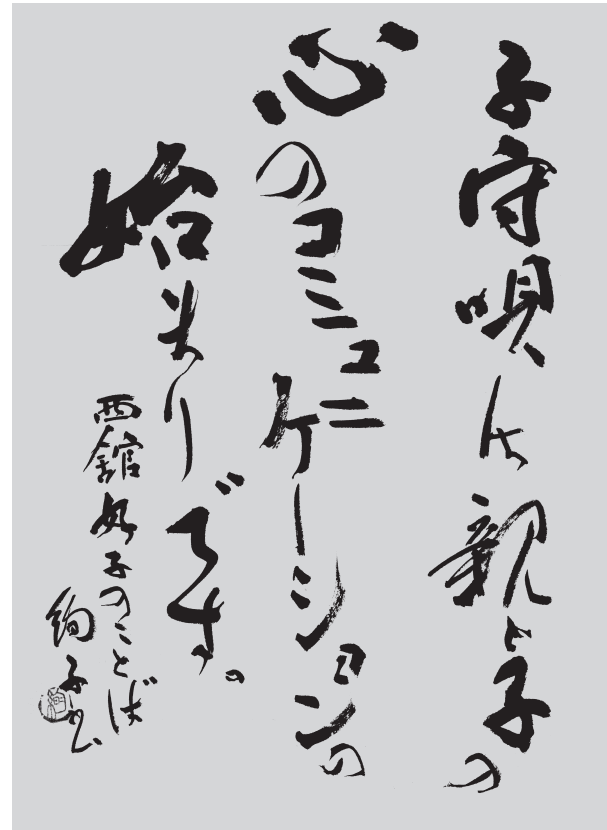 子守唄は親と子の
心のコミュニケーションの
始まりです。
西舘好子のことば
絢子書